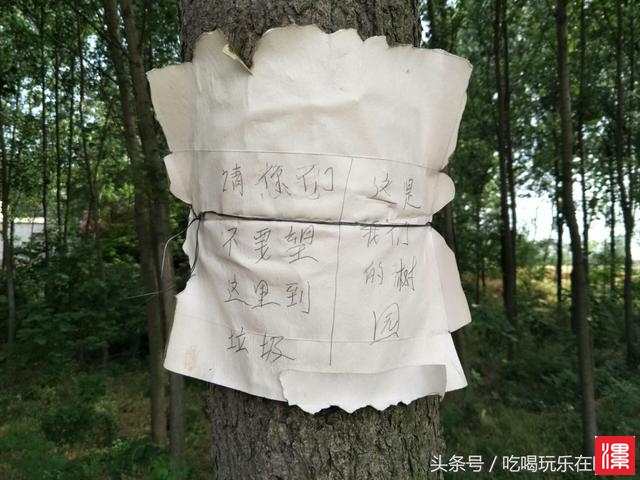 请你们
不要望
这里到
垃圾
这是
我们
的树
园
头条号／吃喝玩乐在
漯